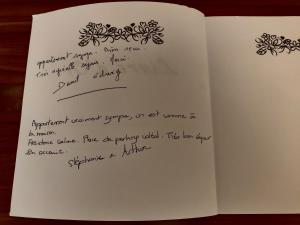 Appartement sympa. Bien situé
Très agréable séjour. Merci
Appartement vraiment sympa, on est comme à
la maison.
Résidence calme. Place de parking idéal. Très bon séjour
en
Stéphanie & Arthur